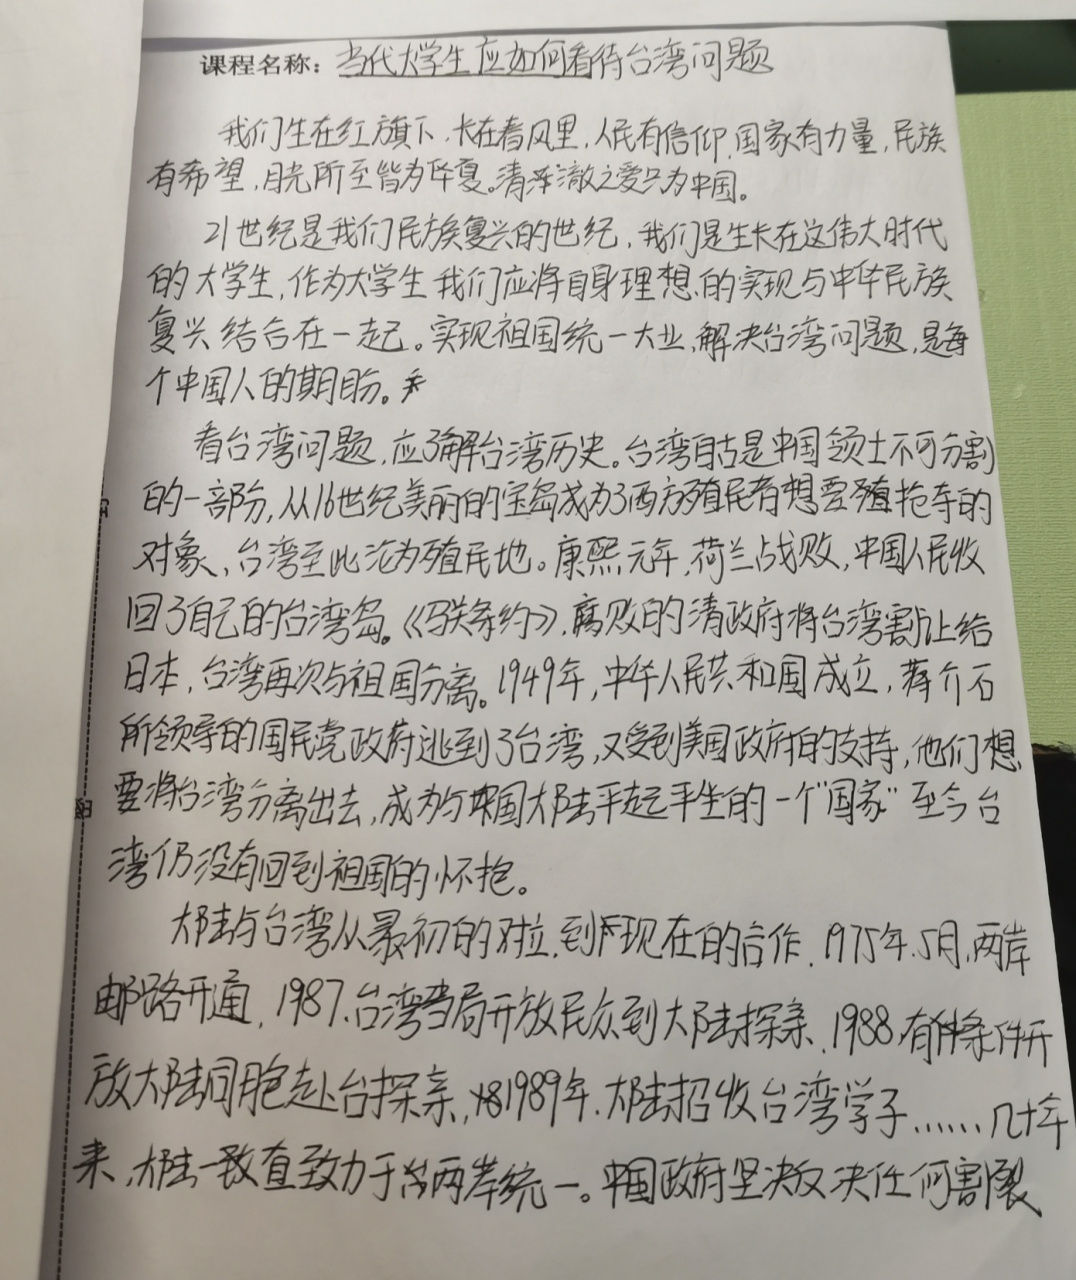 课程名称：当代大学生应如何看待台湾问题
我们生在红旗下，长在春风里，人民有信仰，国家有力量，民族
有希望，目光所至皆为华夏。清澈之爱只为中国。
21世纪是我们民族复兴的世纪，我们是生长在这伟大时代
的大学生，作为大学生 我们应将自身理想的实现与中华民族
复兴结合在一起。实现祖国统一大业，解决台湾问题，是每
个中国人的期盼。
看台湾问题，应了解台湾历史。台湾自古是中国领土不可分割
的一部分，从16世纪美丽的宝岛成为了西方殖民者想要抢夺的
对象，台湾至此沦为殖民地。康熙元年，荷兰战败，中国人民收
回了自己的台湾岛。《马关条约》，腐败的清政府将台湾割让给
日本，台湾再次与祖国分离。1949年，中华人民共和国成立，蒋介石
所领导的国民党政府逃到了台湾，又受到美国政府的支持，他们想
要将台湾分离出去，成为与中国大陆平起平坐的一个“国家”至今台
湾仍没有回到祖国的怀抱。
大陆与台湾从最初的对立，到现在的合作，1975年.5月，两岸
邮路开通，1987、台湾当局开放民众到大陆探亲、1988，有条件开
放大陆同胞赴台探亲，1989年.大陆招收台湾学子……几十年
来，大陆一直致力于两岸统一。中国政府坚决反决任何割裂